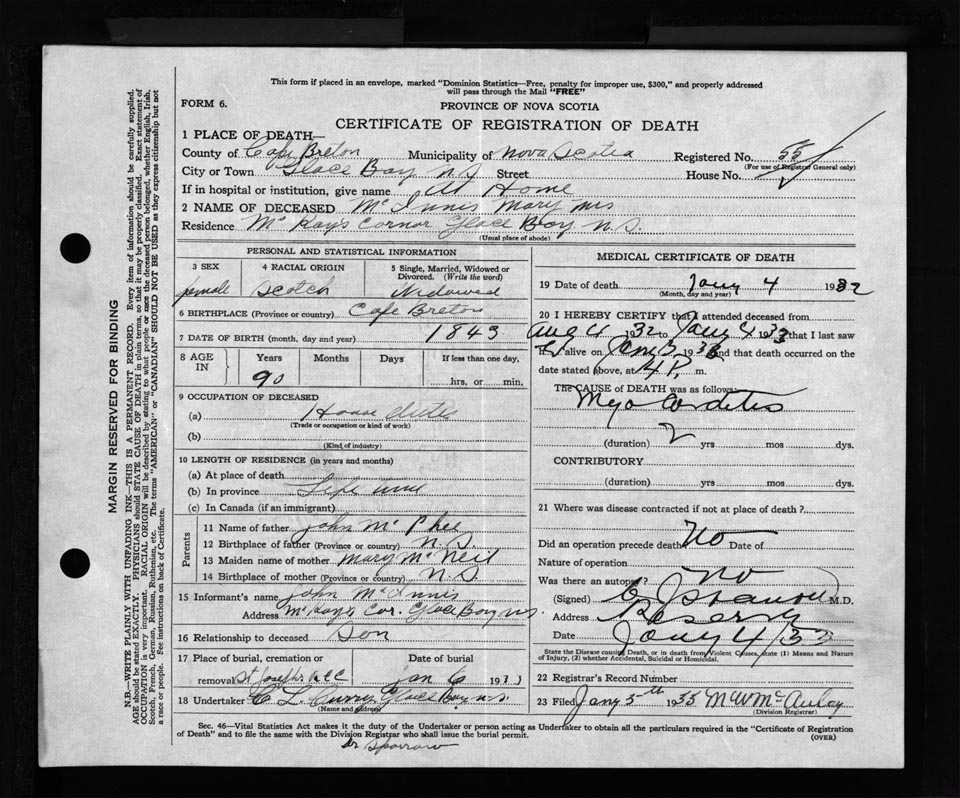 This form if placed in an envelope, marked "Dominion Statistics—Free, penalty for improper use, $300," and properly addressed
will pass through the Mail "FREE"
FORM 6.
PROVINCE OF NOVA SCOTIA
CERTIFICATE OF REGISTRATION OF DEATH
1 PLACE OF DEATH—
County of Cape Breton Municipality of Nova Scotia Registered No. 55
(For use of Registrar General only)
City or Town Glace Bay N.S Street House No.
If in hospital or institution, give name At Home
2 NAME OF DECEASED McInnis Mary Mrs
Residence McKay's Cornor Glace Bay N.S.
(Usual place of abode)
PERSONAL AND STATISTICAL INFORMATION
3 SEX 4 RACIAL ORIGIN 5 Single, Married, Widowed or Divorced. (Write the word)
female Scotch Widowed
6 BIRTHPLACE (Province or country) Cape Breton
7 DATE OF BIRTH (month, day and year) 1843
8 AGE IN Years Months Days If less than one day,
90 hrs. or min.
9 OCCUPATION OF DECEASED
(a) House duties
(Trade or occupation or kind of work)
(b)
(Kind of industry)
10 LENGTH OF RESIDENCE (in years and months)
(a) At place of death
(b) In province Life time
(c) In Canada (if an immigrant)
Parents
11 Name of father John McPhee
12 Birthplace of father (Province or country) N.S.
13 Maiden name of mother Mary McNeil
14 Birthplace of mother (Province or country) N.S.
15 Informant's name John McInnis
Address McKay's Cor. Glace Bay N.S.
16 Relationship to deceased Son
17 Place of burial, cremation or Date of burial
removal St Joseph's Jan 6 1933
18 Undertaker C L Curry Glace Bay N.S
(Name and address)
MEDICAL CERTIFICATE OF DEATH
19 Date of death Jany 4 1932
(Month, day and year)
20 I HEREBY CERTIFY that I attended deceased from
Aug 4 1932 to Jany 4 1933 that I last saw
h alive on Jan 3 193 and that death occurred on the
date stated above, at 4 P. m.
The CAUSE OF DEATH was as follows:
Myocarditis
(duration) 2 yrs mos dys.
CONTRIBUTORY
(duration) yrs mos dys.
21 Where was disease contracted if not at place of death?
Did an operation precede death No Date of
Nature of operation
Was there an autopsy? no
(Signed) M.D.
Address Reserve
Date Jany 4/33
State the Disease causing Death, or in death from Violent Causes, state (1) Means and Nature
of Injury, (2) whether Accidental, Suicidal or Homicidal.
22 Registrar's Record Number
23 Filed Jany 5th 1933 M W McAulay
(Division Registrar)
Sec. 46—Vital Statistics Act makes it the duty of the Undertaker or person acting as Undertaker to obtain all the particulars required in the "Certificate of Registration
of Death" and to file the same with the Division Registrar who shall issue the burial permit.
(OVER)
Dr Sparrow
MARGIN RESERVED FOR BINDING
N.B.—WRITE PLAINLY WITH UNFADING INK—THIS IS A PERMANENT RECORD. Every item of information should be carefully supplied.
AGE should be stated EXACTLY. PHYSICIANS should STATE CAUSE OF DEATH in plain terms, so that it may be properly classified. Exact statement of
OCCUPATION is very important. RACIAL ORIGIN will be described by stating to what people or race the deceased person belonged, whether English, Irish,
Scotch, French, German, Russian, Ruthenian, etc. The terms "AMERICAN" or "CANADIAN" SHOULD NOT BE USED as they express citizenship but not
a race or people. See instructions on back of Certificate.